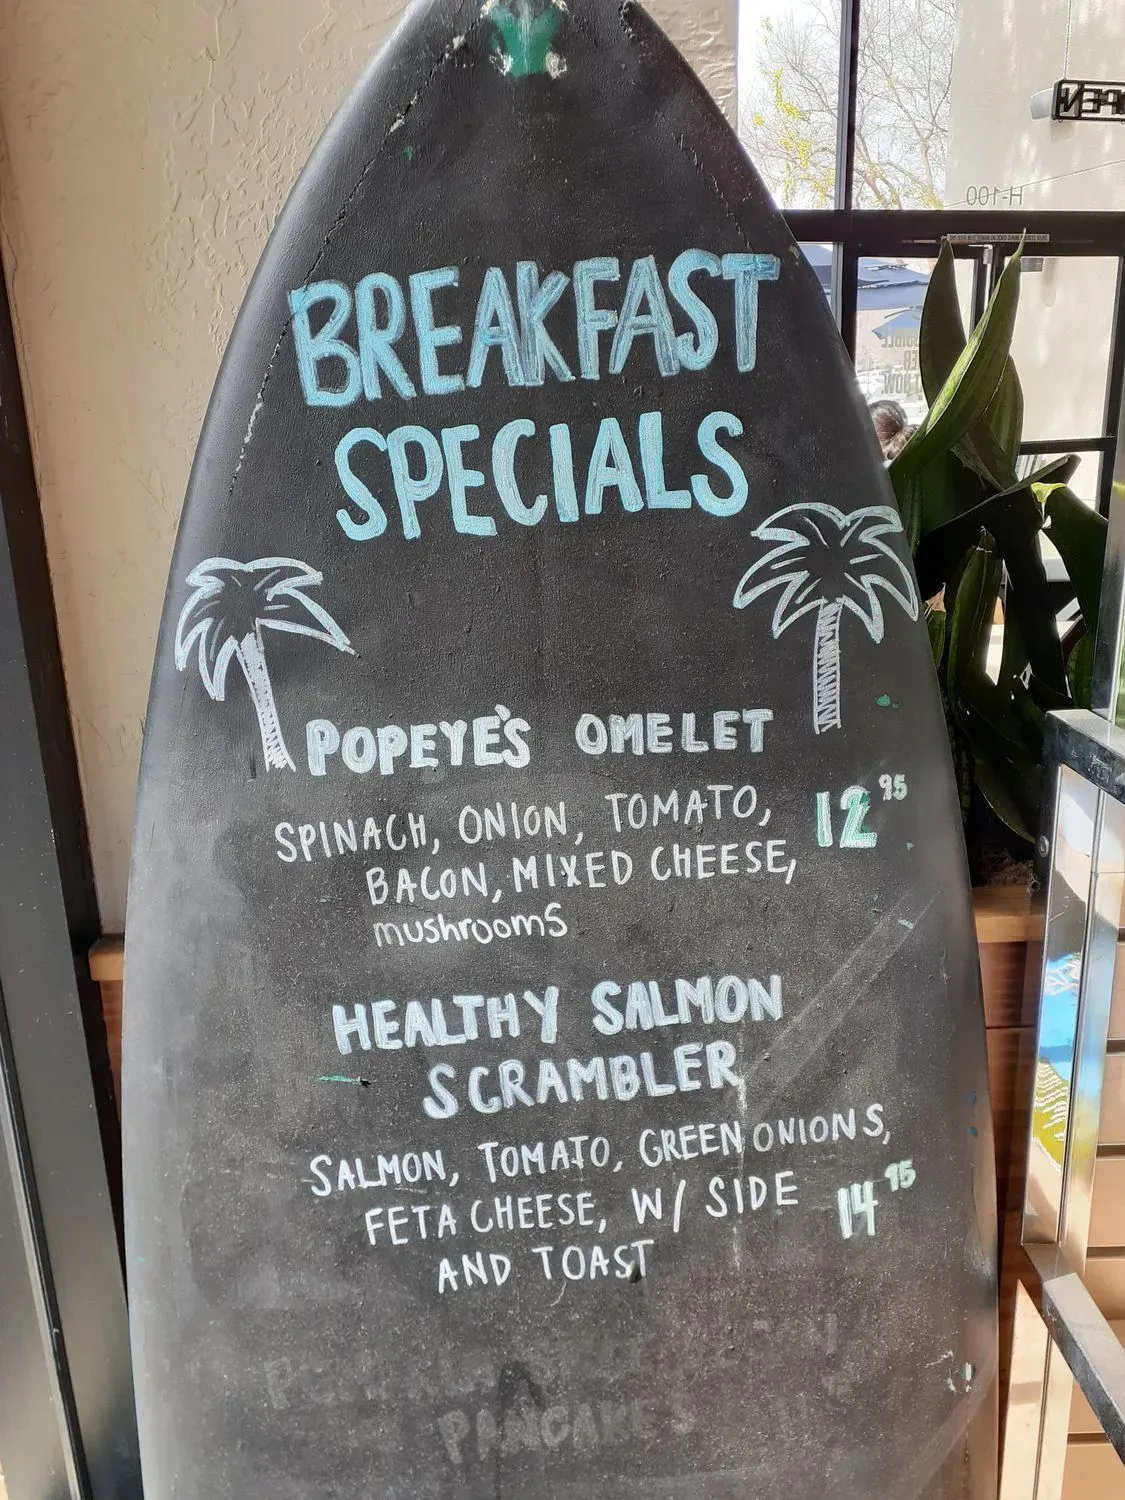 BREAKFAST
SPECIALS
POPEYE'S OMELET
SPINACH, ONION, TOMATO,
BACON, MIXED CHEESE,
mushrooms
12 95
HEALTHY SALMON
SCRAMBLER
SALMON, TOMATO, GREEN ONIONS,
FETA CHEESE, W/ SIDE
AND TOAST
14 95
PANCAKES
OPEN
H-100